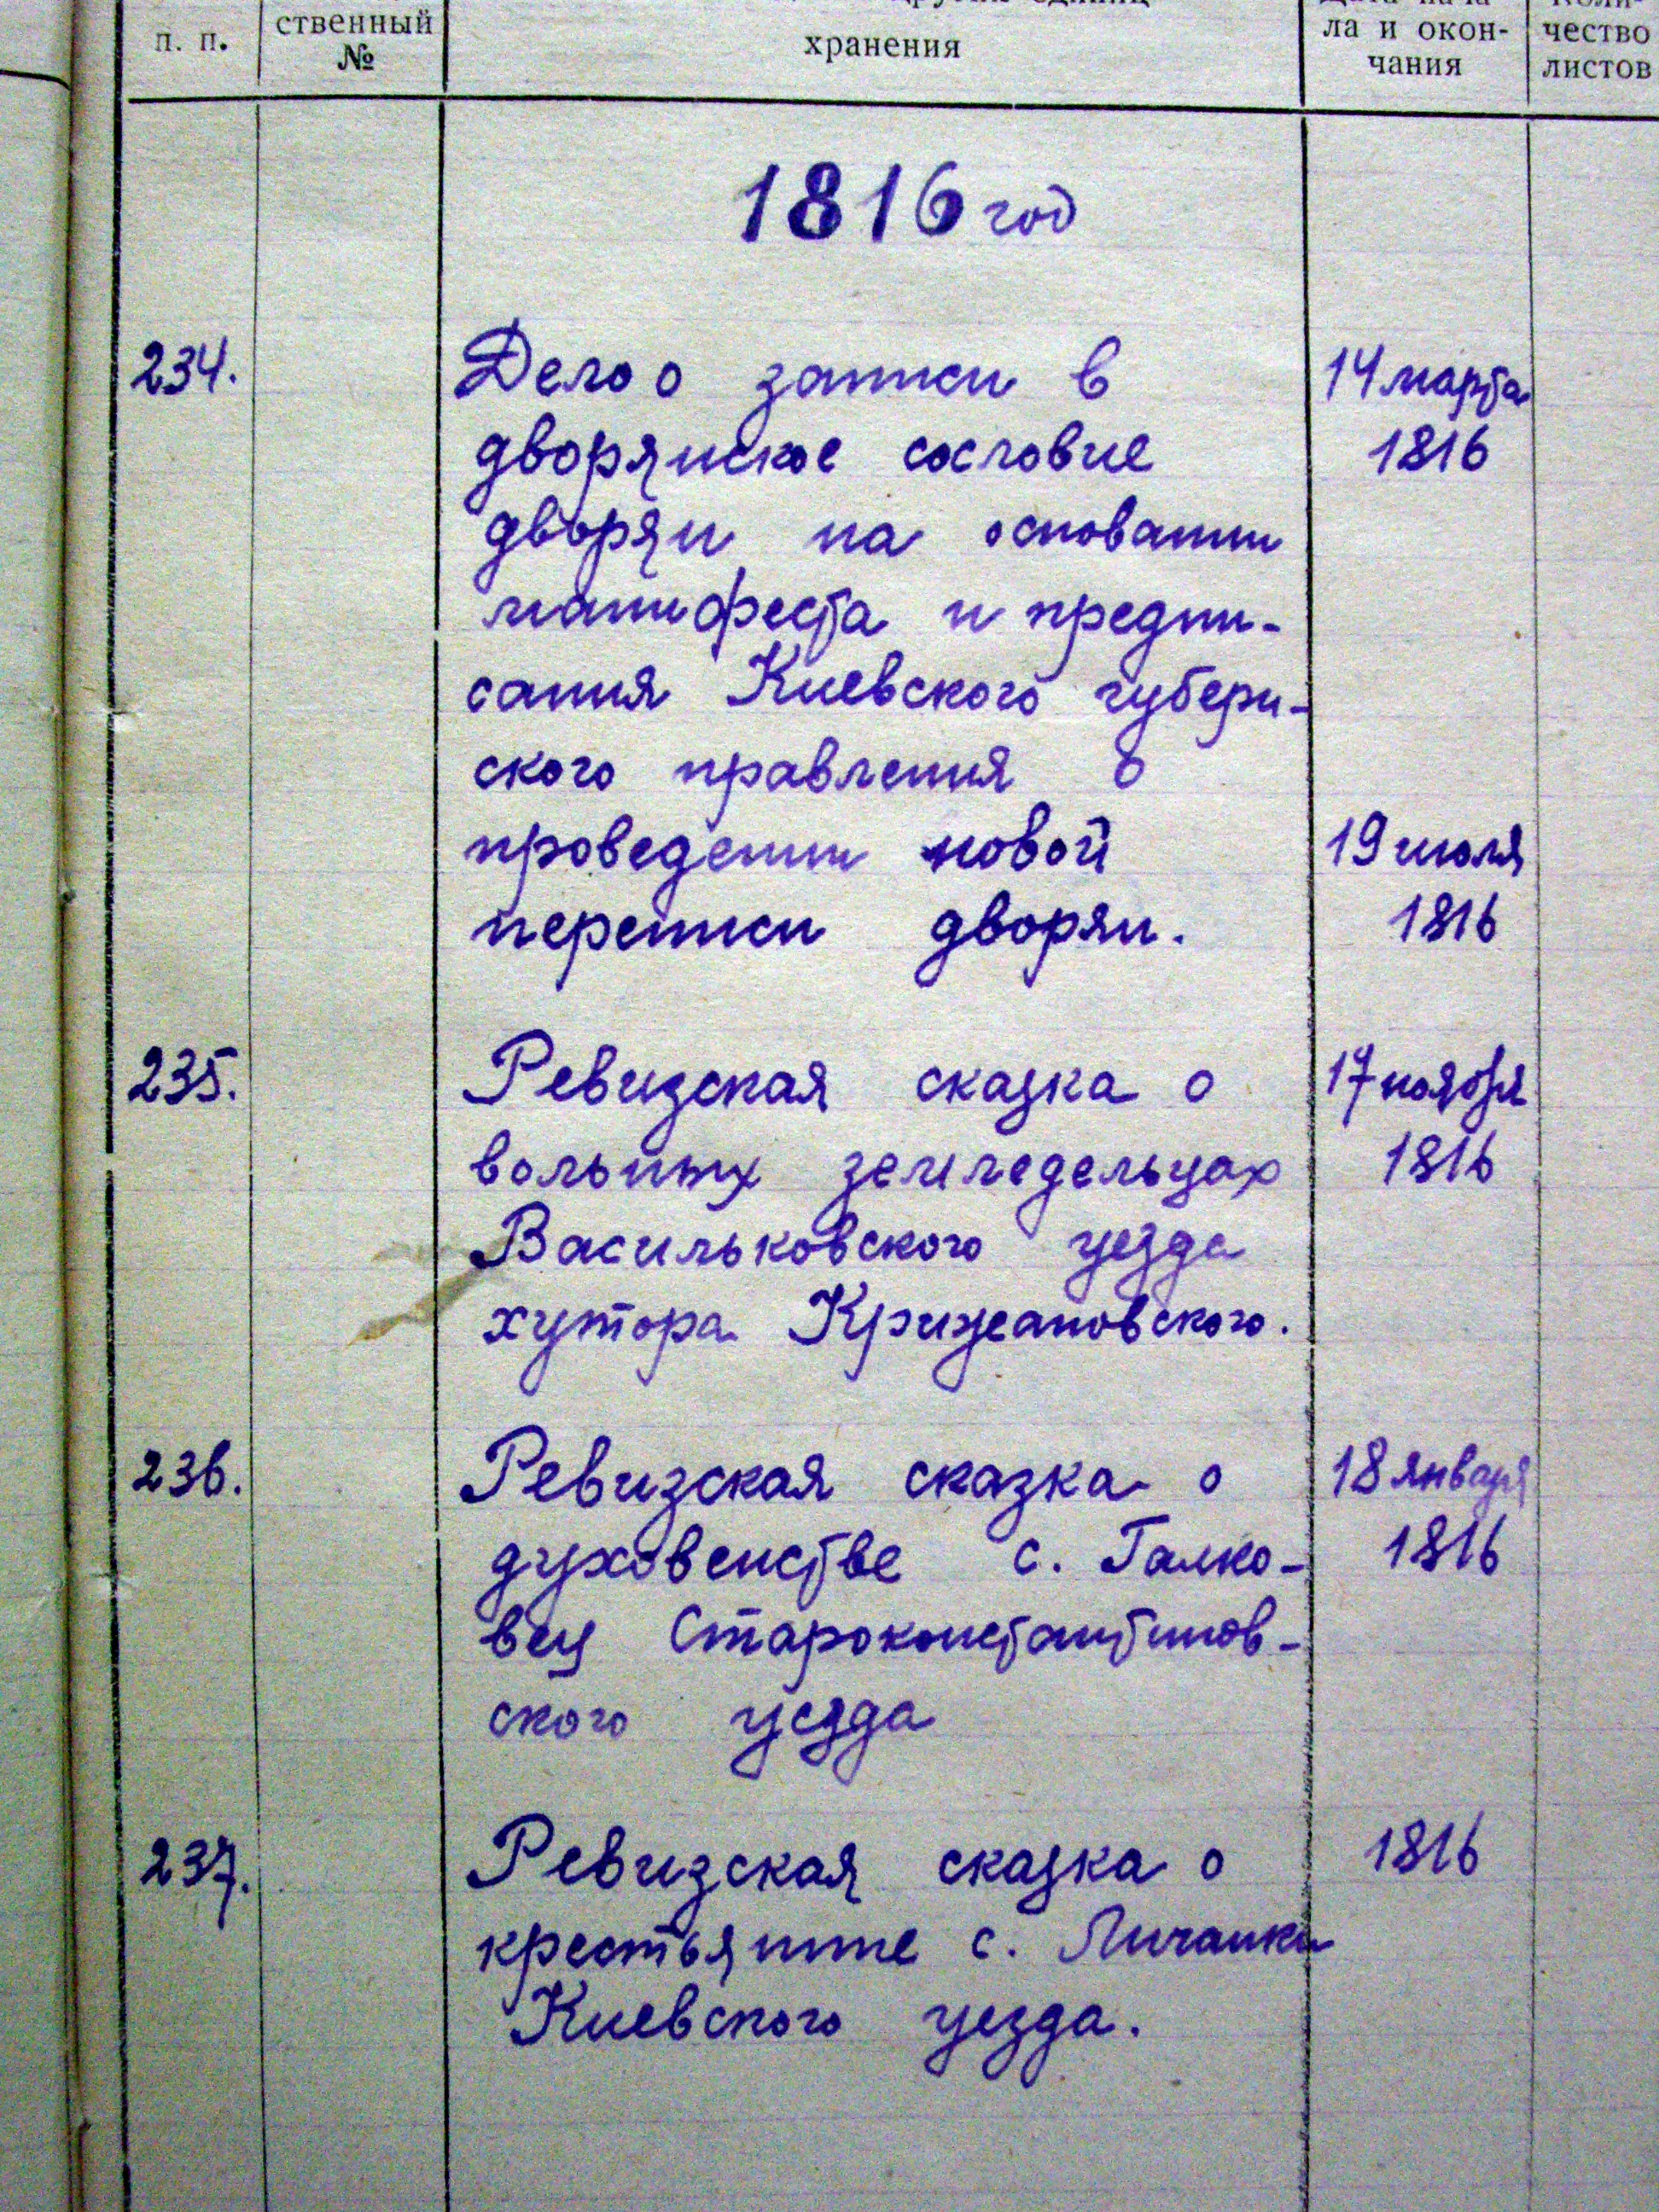 п. п.
ственный
№
других единиц
хранения
Дата нача-
ла и окон-
чания
Коли-
чество
листов
1816 год
234.
Дело о записи в
дворянское сословие
дворян на основании
манифеста и предпи-
сания Киевского губерн-
ского правления о
проведении новой
переписи дворян.
14 марта
1816
19 июля
1816
235.
Ревизская сказка о
вольных земледельцах
Васильковского уезда
хутора Крижановского.
17 ноября
1816
236.
Ревизская сказка о
духовенстве с. Галко-
вец Староконстантинов-
ского уезда
18 января
1816
237.
Ревизская сказка о
крестьянине с. Личанки
Киевского уезда.
1816